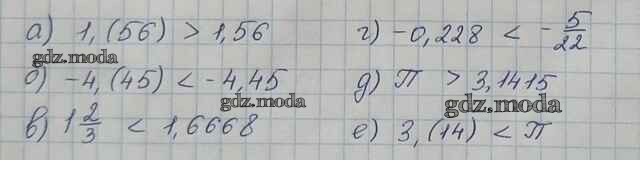 а) 1,(56) > 1,56
gdz.moda
б) -4,(45) < -4,45
gdz.moda
в) 1 2/3 < 1,6668
г) -0,228 < - 5/22
д) П > 3,1415
gdz.moda
е) 3,(14) < П